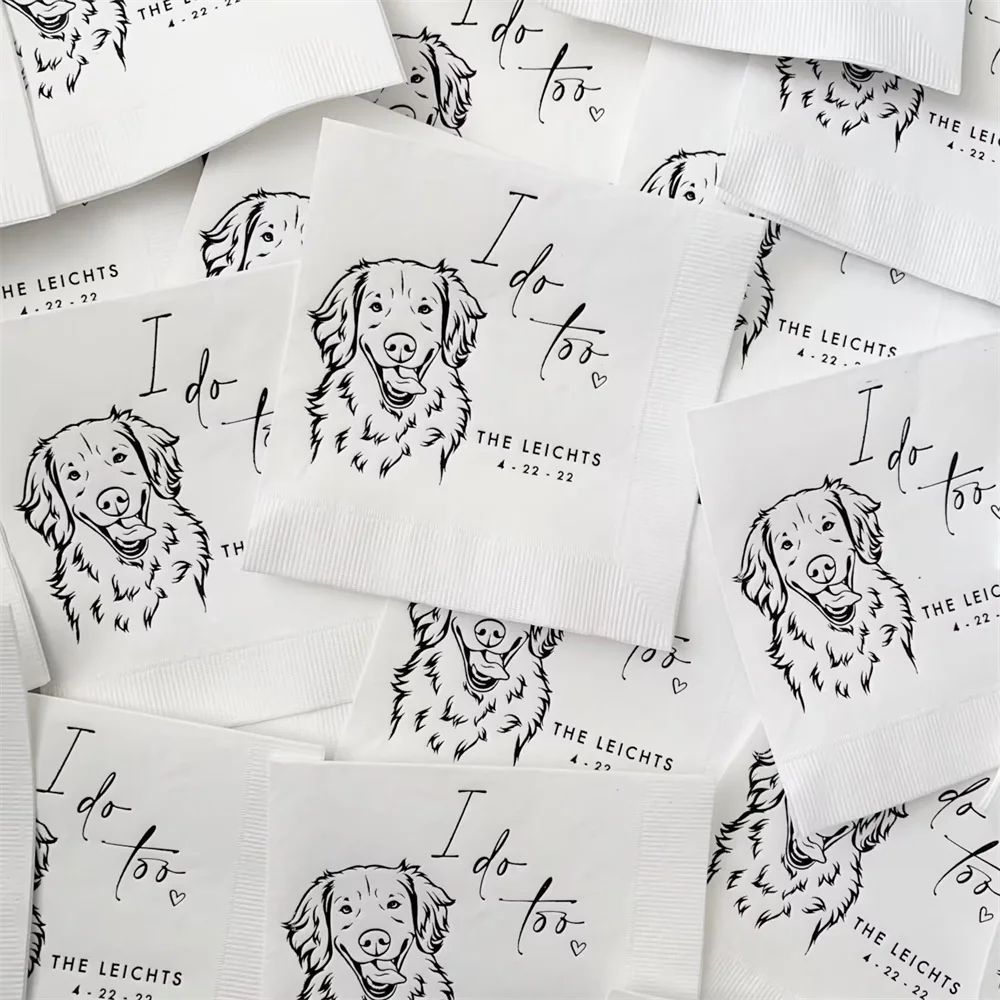 THE L
4 - 22 - 22
I
do
too
THE LEI
4 - 22 -
HE LEICHTS
4 - 22 - 22
I
do
too
THE LEICHTS
4 - 22 - 22
THE LEICHTS
4 - 22 -
I
do
TH
I
do
too
THE LEIC
4 - 22 -
too
THE LEICHTS
4 - 22
I
do
too
THE LEICHTS
4 - 22 - 22
I
do
too
do
too
THE LEICHTS
4 - 22 - 22